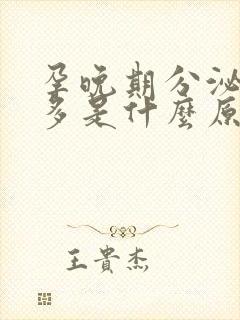 孕晚期分泌
多是什麼原
王貴杰